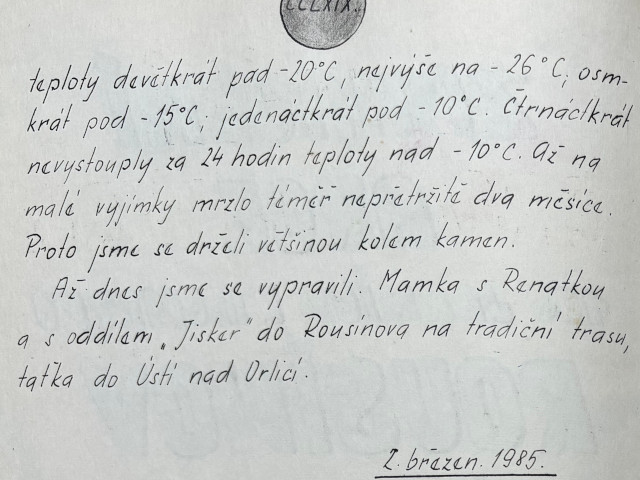 CCCXIX.
teploty devětkrát pod -20°C, nejvýše na -26°C; osm-
krát pod -15°C; jedenáctkrát pod -10°C. Čtrnáctkrát
nevystouply za 24 hodin teploty nad -10°C. Až na
malé vyjímky mrzlo téměř nepřetržitě dva měsíce.
Proto jsme se drželi většinou kolem kamen.
Až dnes jsme se vypravili. Mamka s Renatkou
a s oddílem „Jisker" do Rousínova na tradiční trasu,
taťka do Ústí nad Orlicí.
2. březen. 1985.